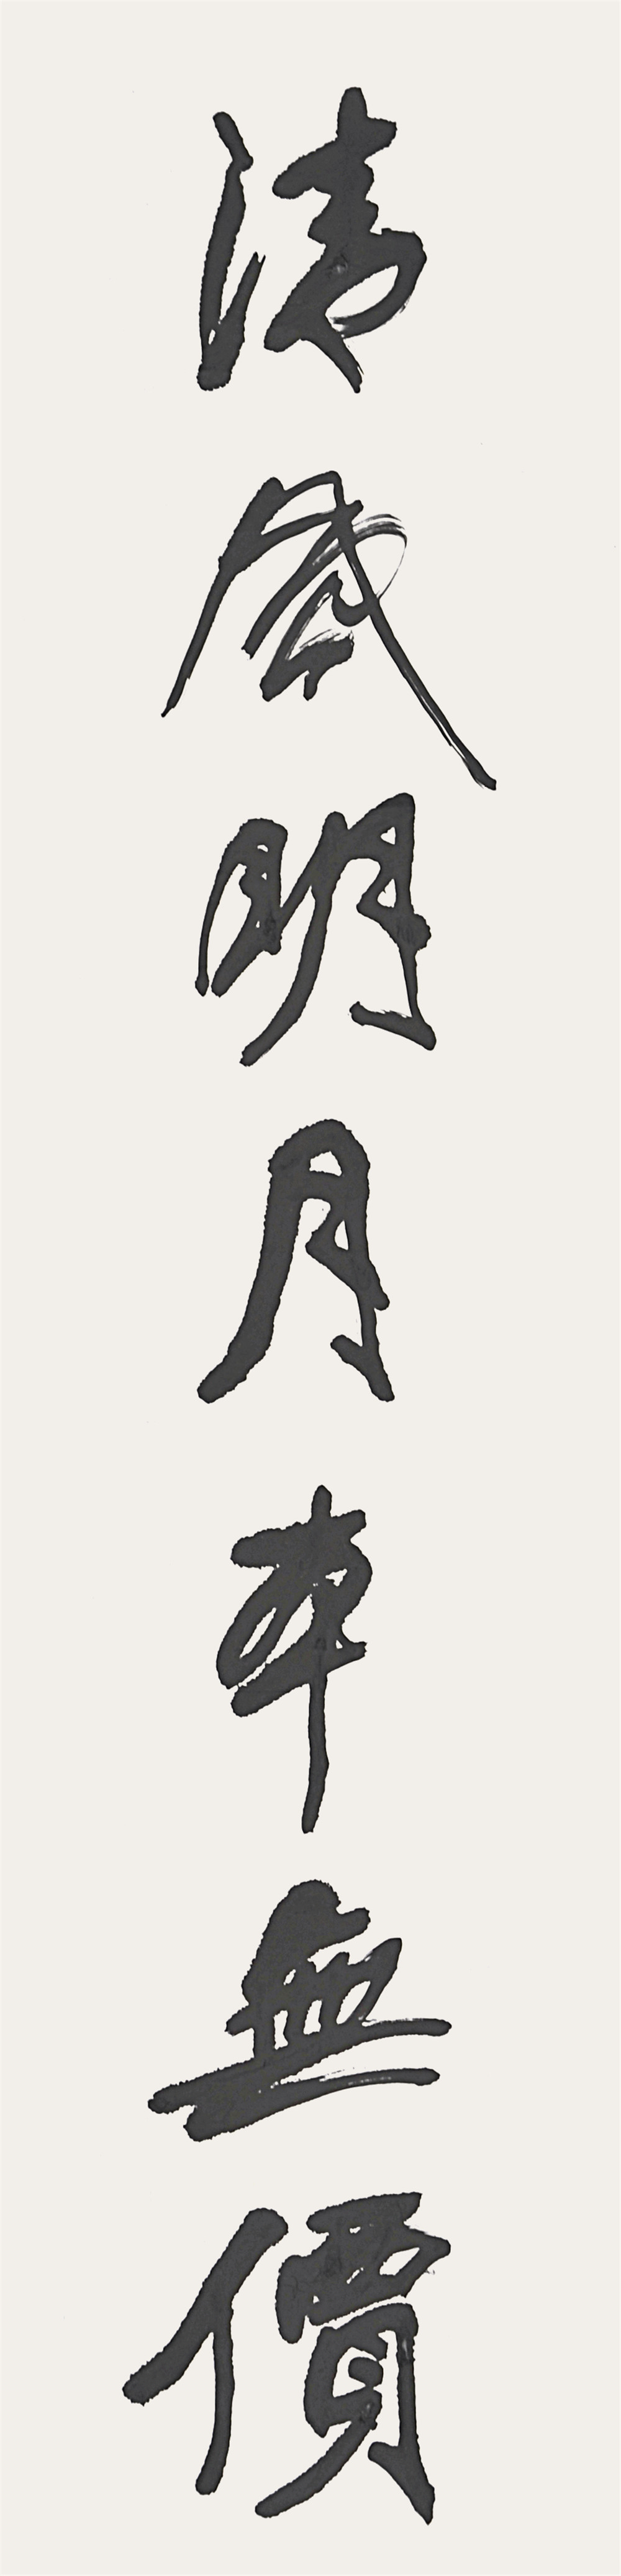 清風明月本無價